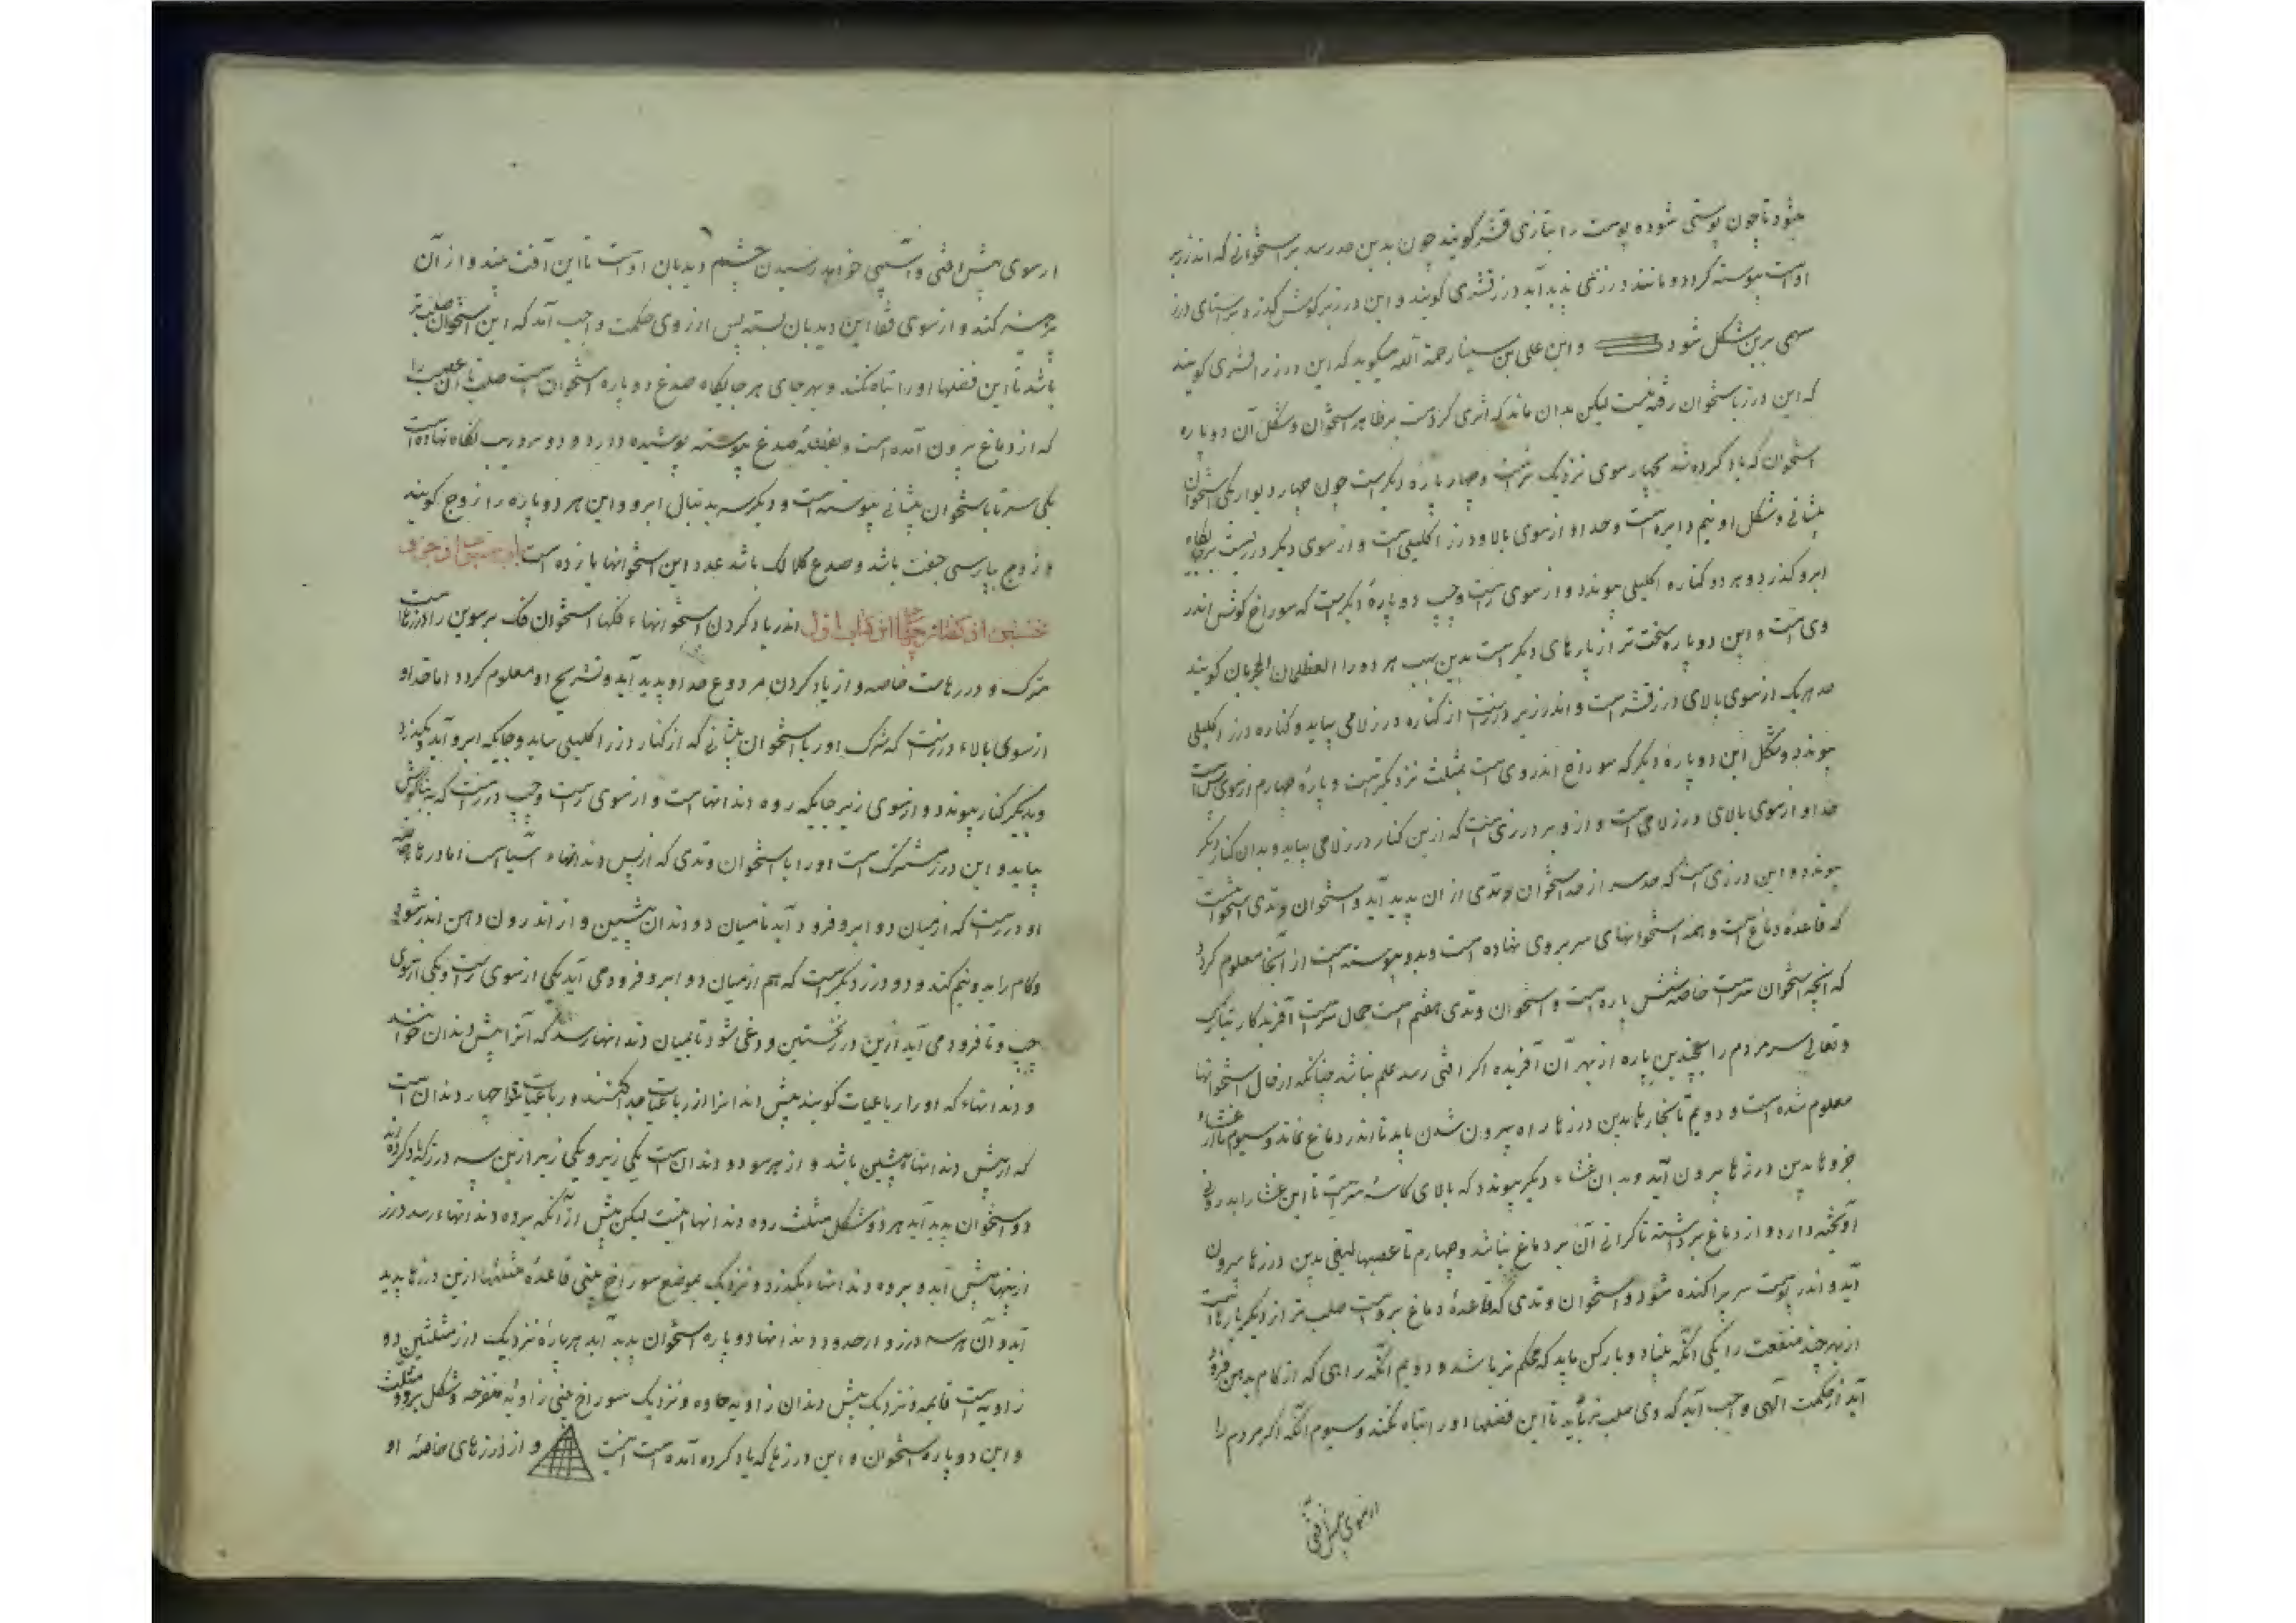 میشود تا چون پوستی شود و پوست را بتازی قشر کویند چون بدین حد رسد بر استخوانی که اندر زیر
اوست پیوسته کردد و مانند درزی پدید آید درز قشری کویند و این درز زیر کوش کذرد بر راستای درز
سهمی برین شکل شود و ابن علی بن سینا رحمة الله میکوید که این درز را قشری کویند
که این درز باستخوان رفته نیست لیکن بدان ماند که اثری کردست بر ظاهر استخوان و شکل آن دو پاره
استخوان که یاد کرده شد بچهار سوی نزدیک ترست و چهار پاره دیکرست چون چهار دیوار یکی استخوان
پیشانی و شکل او نیم دایره است و حد او از سوی بالا درز اکلیلی است و از سوی دیکر درزیست بر جایکاه
ابرو کذرد و هر دو کناره اکلیلی پیوندد و از سوی راست و چپ دو پارهٔ دیکرست که سوراخ کوش اندر
وی است و این دو پاره سخت تر از پارهای دیکرست بدین سبب هر دو را العظمان الحجریان کویند
حد هر یک از سوی بالای درز قشرست و اندر زیر درزیست از کناره درز لامی بیاید و کناره درز اکلیلی
پیوندد و شکل این دو پاره دیکر که سوراخ اندر وی است بمثلث نزدیکترست و پارهٔ چهارم از سوی پس است
حد او از سوی بالای درز لامی است و از زیر درزی است که ازین کنار درز لامی بیاید و بدان کنار دیکر
پیوندد و این درزی است که حد سر از حد استخوان وتدی از ان پدید آید و استخوان وتدی استخوانیست
که قاعدهٔ دماغ است و همه استخوانهای سر بر وی نهاده است و بدو پیوسته است از آنجا معلوم کردد
که آنچه استخوان سرست خاصه شش پاره است و استخوان وتدی هفتم است حمال سرست آفریدکار تبارک
و تعالی سر مردم را بچندین پاره از بهر آن آفریده اکر آفتی رسد علم نباشد چنانکه از حال استخوانها
معلوم شده است و دویم تا بخارها بدین درزها راه بیرون شدن یابد تا اندر دماغ نماند و سیوم تا از غشاء
جزوها بدین درزها بیرون آید و بدان غشاء دیکر پیوندد که بالای کاسهٔ سرست تا این غشا را بدرونی
آویخته دارد و از دماغ برداشته تا کرانی آن بر دماغ نباشد و چهارم تا عصبها لیفی بدین درزها بیرون
آید و اندر پوست سر پراکنده شود و استخوان وتدی که قاعدهٔ دماغ بروست صلب تر از دیکر پارهاست
از بهر چند منفعت را یکی آنکه بنیاد و بارکش باید که محکم تر باشد و دویم آنکه راهی که از کام بدهن فرو
آید از حکمت الهی واجب آید که وی صلب تر باید تا این فضلها او را تباه نکند و سیوم آنکه اکر مردم را
از سوی پیش آفتی
از سوی پیش آفتی و آسیبی خواهد رسیدن چشم دیدبان اوست تا این آفت بیند و از آن
پرهیز کند و از سوی قفا این دیدبان نیست پس از روی حکمت واجب آمد که این استخوان صلب تر
باشد تا این فضلها او را تباه نکند و بهر جای هر جایکاه صدغ دو پاره استخوان است صلب تا آن عصب را
که از دماغ بیرون آمده است و بعضلهٔ صدغ پیوسته پوشیده دارد و دو بر وریب نکاه نهاده است
یکی سر تا باستخوان پیشانی پیوسته است و دیکر سر بدنبال ابرو و این هر دو پاره را زوج کویند
و زوج پارسی جفت باشد و صدغ کلالک باشد عدد این استخوانها یازده است
نخستین از کفتار چهارم از کتاب اول اندر یاد کردن استخوانهاء فکها استخوان فک برسوین را درزهاست
مشترک و درزهاست خاصه و از یاد کردن هر دو نوع حد او پدید آید و تشریح او معلوم کردد اما حد او
از سوی بالاء درزیست که مشترک اورا با استخوان پیشانی که از کنار درز اکلیلی بیاید و جایکه ابرو آید و بکذرد
و بدیکر کنار پیوندد و از سوی زیر جایکه روه دندانهاست و از سوی راست و چپ درزیست که به بناکوش
بیاید و این درز مشترک است اورا با استخوان وتدی که از پس دندانهاء آسیاست اما درزهاء خاصه
او درزیست که از میان دو ابرو فرود آید تا میان دو دندان پیشین و از اندرون دهن اندر شود
و کام را بدو نیم کند و دو درز دیکرست که هم از میان دو ابرو فرود می آید یکی از سوی راست و یکی از سوی
چپ و تا فرود می آید ازین درز نخستین دور می شود تا بمیان دندانها رسد که آنرا پیش دندان خوانند
و دندانهاء که او را رباعیات کویند پیش دندانرا از رباعیات جدا کنند و رباعیات چهار دندان است
که از پیش دندانهاء پیشین باشد و از هر سو دو دندان است یکی زیر و یکی زبر ازین سه درز که یاد کرده اند
دو استخوان پدید آید هر دو شکل مثلث روه دندانها نیست لیکن پیش از آنکه بروه دندانهاء رسد درز
از پنهان پیش آید و بروه دندانهاء بکذرد و نزدیک بموضع سوراخ بینی قاعدهٔ مثلثها ازین درزها پدید
آید و آن هر سه درز و از حدود دندانها دو پاره استخوان پدید آید هر پارهٔ نزدیک درز مثلثین دو
زاویه است قایمه و نزدیک پیش دندان زاویه حاده و نزدیک سوراخ بینی زاویهٔ منفرجه و شکل هر دو مثلث
و این دو پاره استخوان و این درزها که یاد کرده آمده است اینست و از درزهای خاصهٔ او